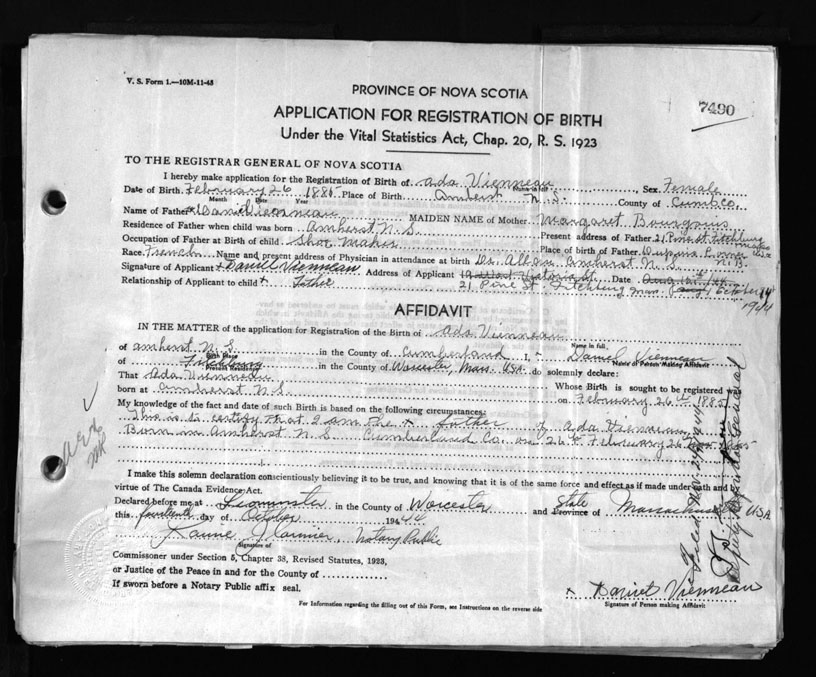 V. S. Form 1.—10M-11-43
PROVINCE OF NOVA SCOTIA
7490
APPLICATION FOR REGISTRATION OF BIRTH
Under the Vital Statistics Act, Chap. 20, R. S. 1923
TO THE REGISTRAR GENERAL OF NOVA SCOTIA
I hereby make application for the Registration of Birth of Ada Vienneau, Sex Female
Name in full
Date of Birth February 26 1885 Place of Birth Amherst N.S. County of Cumb Co.
Month Date Year
Name of Father Daniel Vienneau MAIDEN NAME of Mother Margaret
Residence of Father when child was born Amherst N.S. Present address of Father 21 Pine St. Fitchburg
Occupation of Father at Birth of child Shoe Maker Place of birth of Father N.B.
Race French Name and present address of Physician in attendance at birth Dr. Amherst N.S.
Signature of Applicant Daniel Vienneau Address of Applicant Victoria St. Date
Relationship of Applicant to child Father 21 Pine St. Fitchburg Mass. October 14
1944
AFFIDAVIT
IN THE MATTER of the application for Registration of the Birth of Ada Vienneau
Name in full
of Amherst N.S. in the County of Cumberland I, Daniel Vienneau
Birth Place Name of Person Making Affidavit
of Fitchburg in the County of Worcester, Mass. USA do solemnly declare:
Present Residence
That Ada Vienneau Whose Birth is sought to be registered was
born at Amherst N.S. on February 26th 1885
My knowledge of the fact and date of such Birth is based on the following circumstances:
This is to certify that I am the father of Ada Vienneau
Born in Amherst N.S. Cumberland Co. on 26th February
I make this solemn declaration conscientiously believing it to be true, and knowing that it is of the same force and effect as if made under oath and by
virtue of The Canada Evidence Act.
Declared before me at Leominster in the County of Worcester and State Province of Massachusetts USA
this fourteenth day of October 1944
Notary Public
Signature of
Commissioner under Section 5, Chapter 38, Revised Statutes, 1923,
or Justice of the Peace in and for the County of
If sworn before a Notary Public affix seal.
x Daniel Vienneau
Signature of Person making Affidavit
For Information regarding the filling out of this Form, see Instructions on the reverse side
Deputy Registrar General